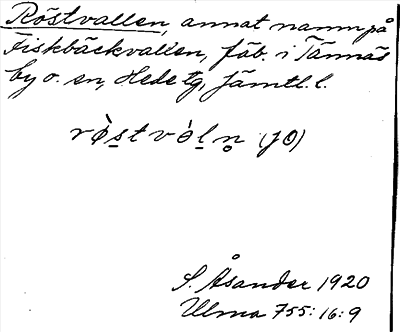 Röstvallen, annat namn på
Fiskbäckvallen, fäb. i Tännäs
by o. sn, Hede tg, Jämtl. l.
rø̀s̲tvòl̲n̥ (JO)
S. Åsander 1920
Ulma 755:16:9